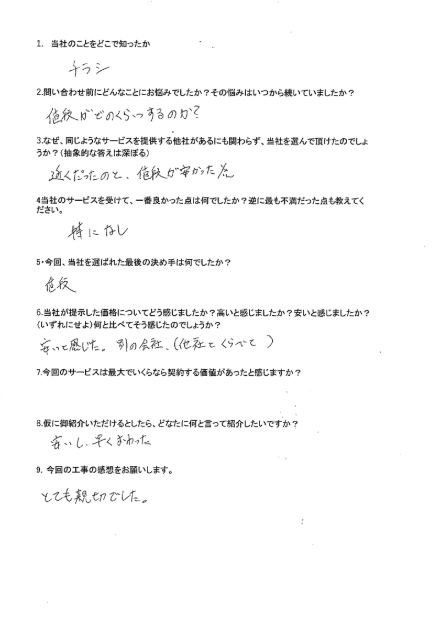 1. 当社のことをどこで知ったか
チラシ
2.問い合わせ前にどんなことにお悩みでしたか？その悩みはいつから続いていましたか？
値段がどのくらいするのか？
3.なぜ、同じようなサービスを提供する他社があるにも関わらず、当社を選んで頂けたのでしょ
うか？（抽象的な答えは深ぼる）
近くだったのと、値段が安かった為
4当社のサービスを受けて、一番良かった点は何でしたか？逆に最も不満だった点も教えてく
ださい。
特になし
5・今回、当社を選ばれた最後の決め手は何でしたか？
値段
6.当社が提示した価格についてどう感じましたか？高いと感じましたか？安いと感じましたか？
（いずれにせよ）何と比べてそう感じたのでしょうか？
安いと感じた。別の会社、（他社とくらべて）
7.今回のサービスは最大でいくらなら契約する価値があったと感じますか？
8.仮に御紹介いただけるとしたら、どなたに何と言って紹介したいですか？
安いし、早くおわった
9. 今回の工事の感想をお願いします。
とても親切でした。